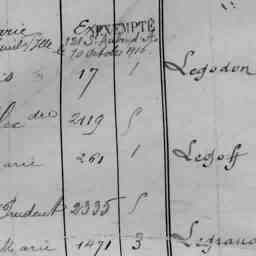 arie
EXEMPTÉ
10 Octobre 1916
17 1 Legodon
dre 2119 5
arie 261 1 Legoff
Prudent 2335 5
Marie 1471 3 Legrand